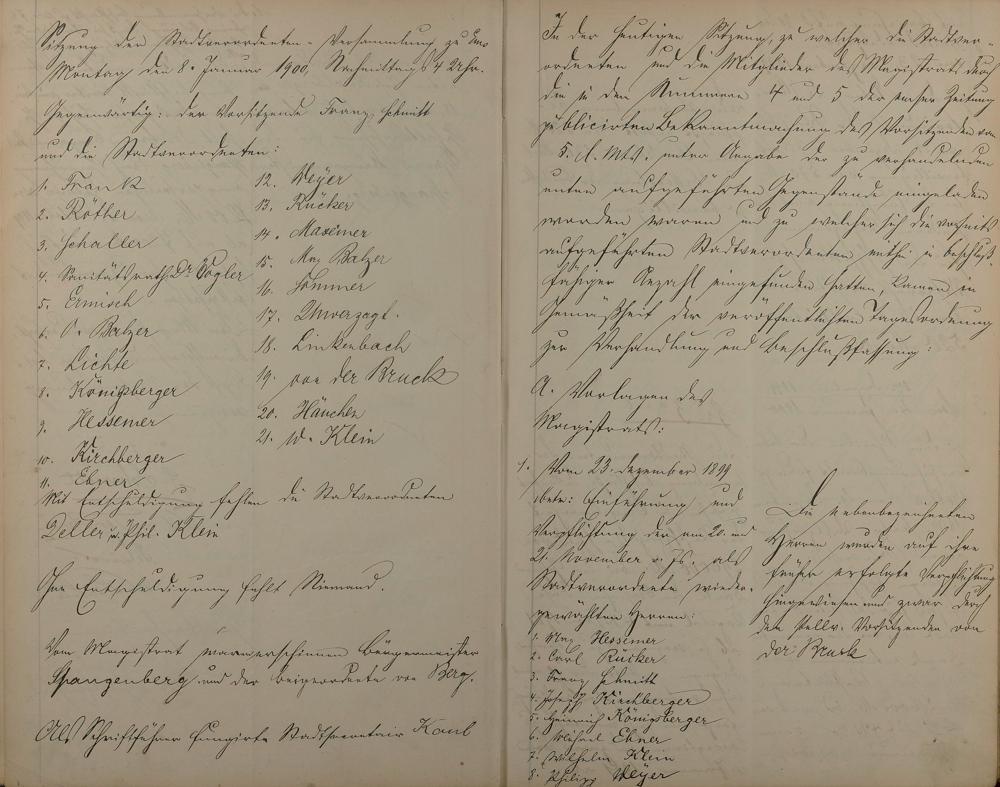 Sitzung der Stadtverordneten-Versammlung zu Ems
Montag den 8. Januar 1900, Nachmittags 4 Uhr.
Gegenwärtig: der Vorsitzende Franz Schmitt
und die Stadtverordneten:
1. Frank
2. Röther
3. Schaller
4. Sanitätsrath Dr. Vogler
5. Ermisch
6. O. Balzer
7. Lichte
8. Königsberger
9. Hessemer
10. Kirchberger
11. Ebner
12. Weyer
13. Rücker
14. Maxeiner
15. Balzer
16. Sommer
17. Unverzagt.
18. Linkenbach
19. von der Bruck
20. Häuchen
21. W. Klein
Mit Entschuldigung fehlen die Stadtverordneten
Deller u. Phil. Klein
Ohne Entschuldigung fehlt Niemand.
Vom Magistrat waren erschienen Bürgermeister
Spangenberg und der Beigeordnete von Berg.
Als Schriftführer fungirte Stadtsecretair Kaul
In der heutigen Sitzung, zu welcher die Stadtver-
ordneten und die Mitglieder des Magistrats durch
die in den Nummern 4 und 5 der Emser Zeitung
publicirten Bekanntmachung des Vorsitzenden vom
5. d. Mts. unter Angabe der zu verhandelnden
unten aufgeführten Gegenstände eingeladen
worden waren und zu welcher sich die vorseits
aufgeführten Stadtverordneten mithin in beschluß-
fähiger Anzahl eingefunden hatten, kamen in
Gemäßheit der veröffentlichten Tagesordnung
zur Verhandlung und Beschlußfassung:
A. Vorlagen des
Magistrats:
1. Vom 23. Dezember 1899
betr: Einführung und
Verpflichtung der am 20. und
21. November v. Js. als
Stadtverordnete wieder-
gewählten Herren:
1. Hessemer
2. Carl Rücker
3. Franz Schmitt
4. Joseph Kirchberger
5. Heinrich Königsberger
6. Michael Ebner
7. Wilhelm Klein
8. Philipp Weyer
Die nebenbezeichneten
Herren wurden auf ihre
früher erfolgte Verpflichtung
hingewiesen und zwar durch
den stellv. Vorsitzenden von
der Bruck